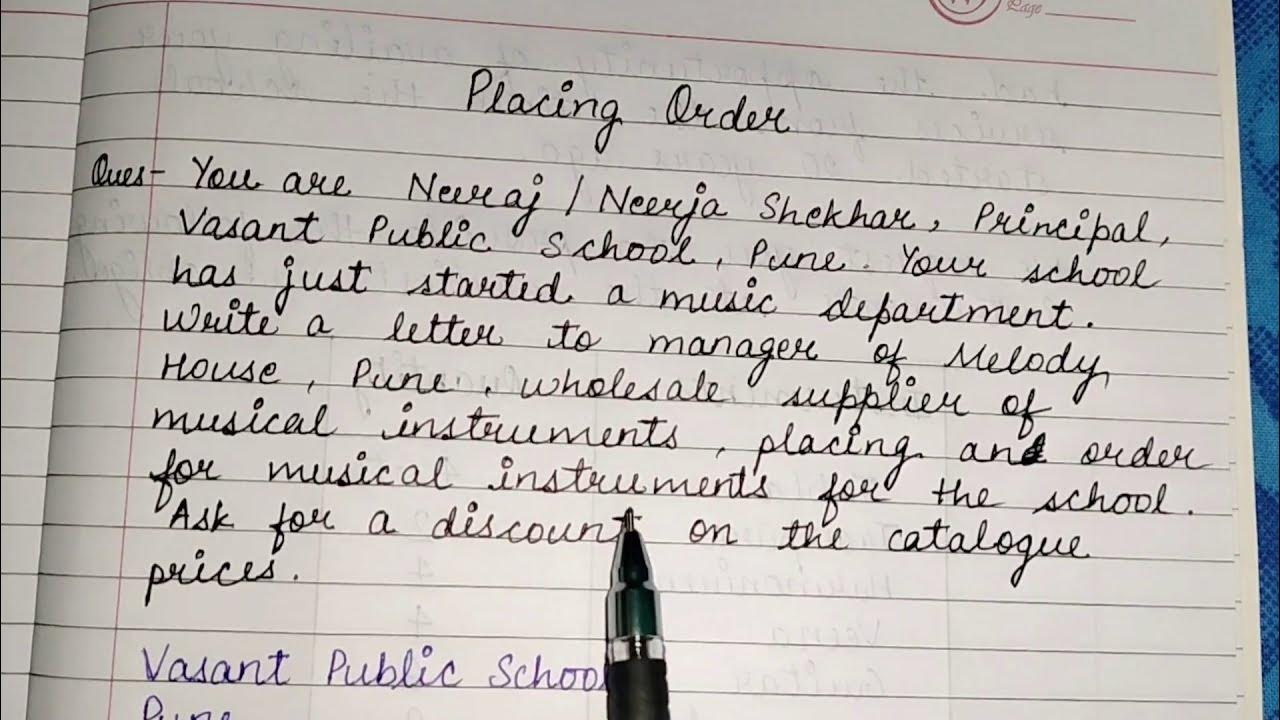 Page
Placing Order
Ques- You are Neeraj / Neerja Shekhar, Principal,
Vasant Public School, Pune. Your school
has just started a music department.
Write a letter to manager of Melody
House, Pune, wholesale supplier of
musical instruments, placing and order
for musical instruments for the school.
Ask for a discount on the catalogue
prices.
Vasant Public School
Pune